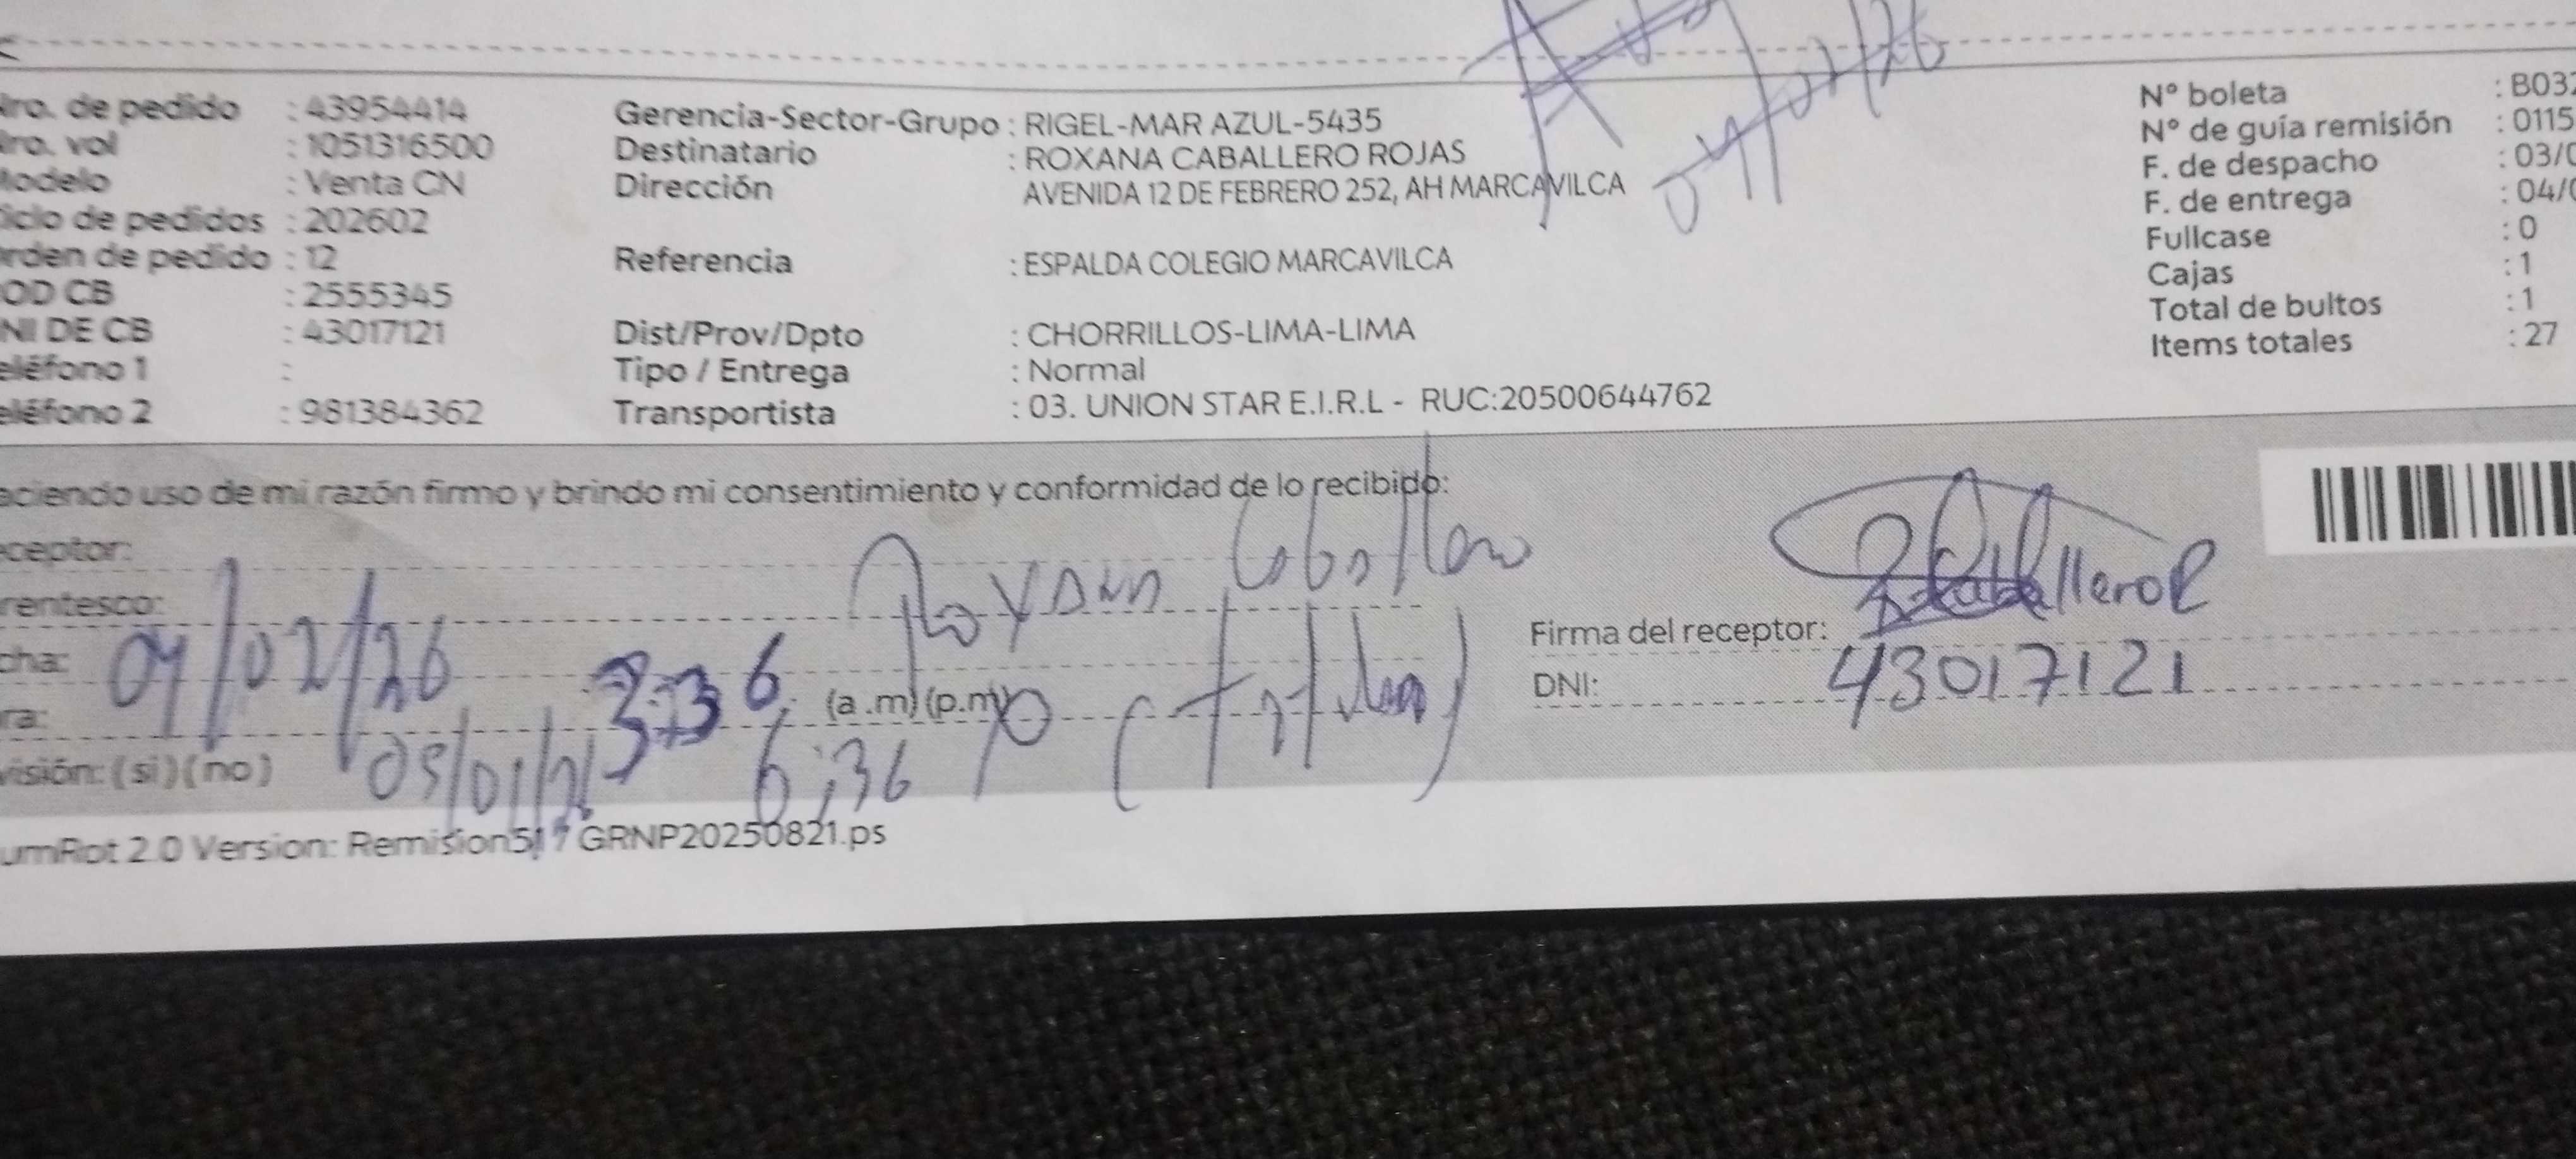 04/02/26
ro. de pedido : 43954414
ro. vol : 1051316500
odelo : Venta CN
iclo de pedidos : 202602
rden de pedido : 12
OD CB : 2555345
NI DE CB : 43017121
eléfono 1 :
eléfono 2 : 981384362
Gerencia-Sector-Grupo : RIGEL-MAR AZUL-5435
Destinatario : ROXANA CABALLERO ROJAS
Dirección AVENIDA 12 DE FEBRERO 252, AH MARCAVILCA
Referencia : ESPALDA COLEGIO MARCAVILCA
Dist/Prov/Dpto : CHORRILLOS-LIMA-LIMA
Tipo / Entrega : Normal
Transportista : 03. UNION STAR E.I.R.L - RUC:20500644762
N° boleta : B03
N° de guía remisión : 0115
F. de despacho : 03/0
F. de entrega : 04/0
Fullcase : 0
Cajas : 1
Total de bultos : 1
Items totales : 27
aciendo uso de mi razón firmo y brindo mi consentimiento y conformidad de lo recibido:
ceptor: Roxana Caballero
rentesco: (Titular)
cha: 04/02/26
ra: 3:36 (a .m) (p.m)
6:36
visión: (si) (no)
Firma del receptor: Caballero R
DNI: 43017121
umRot 2.0 Version: Remision517 GRNP20250821.ps